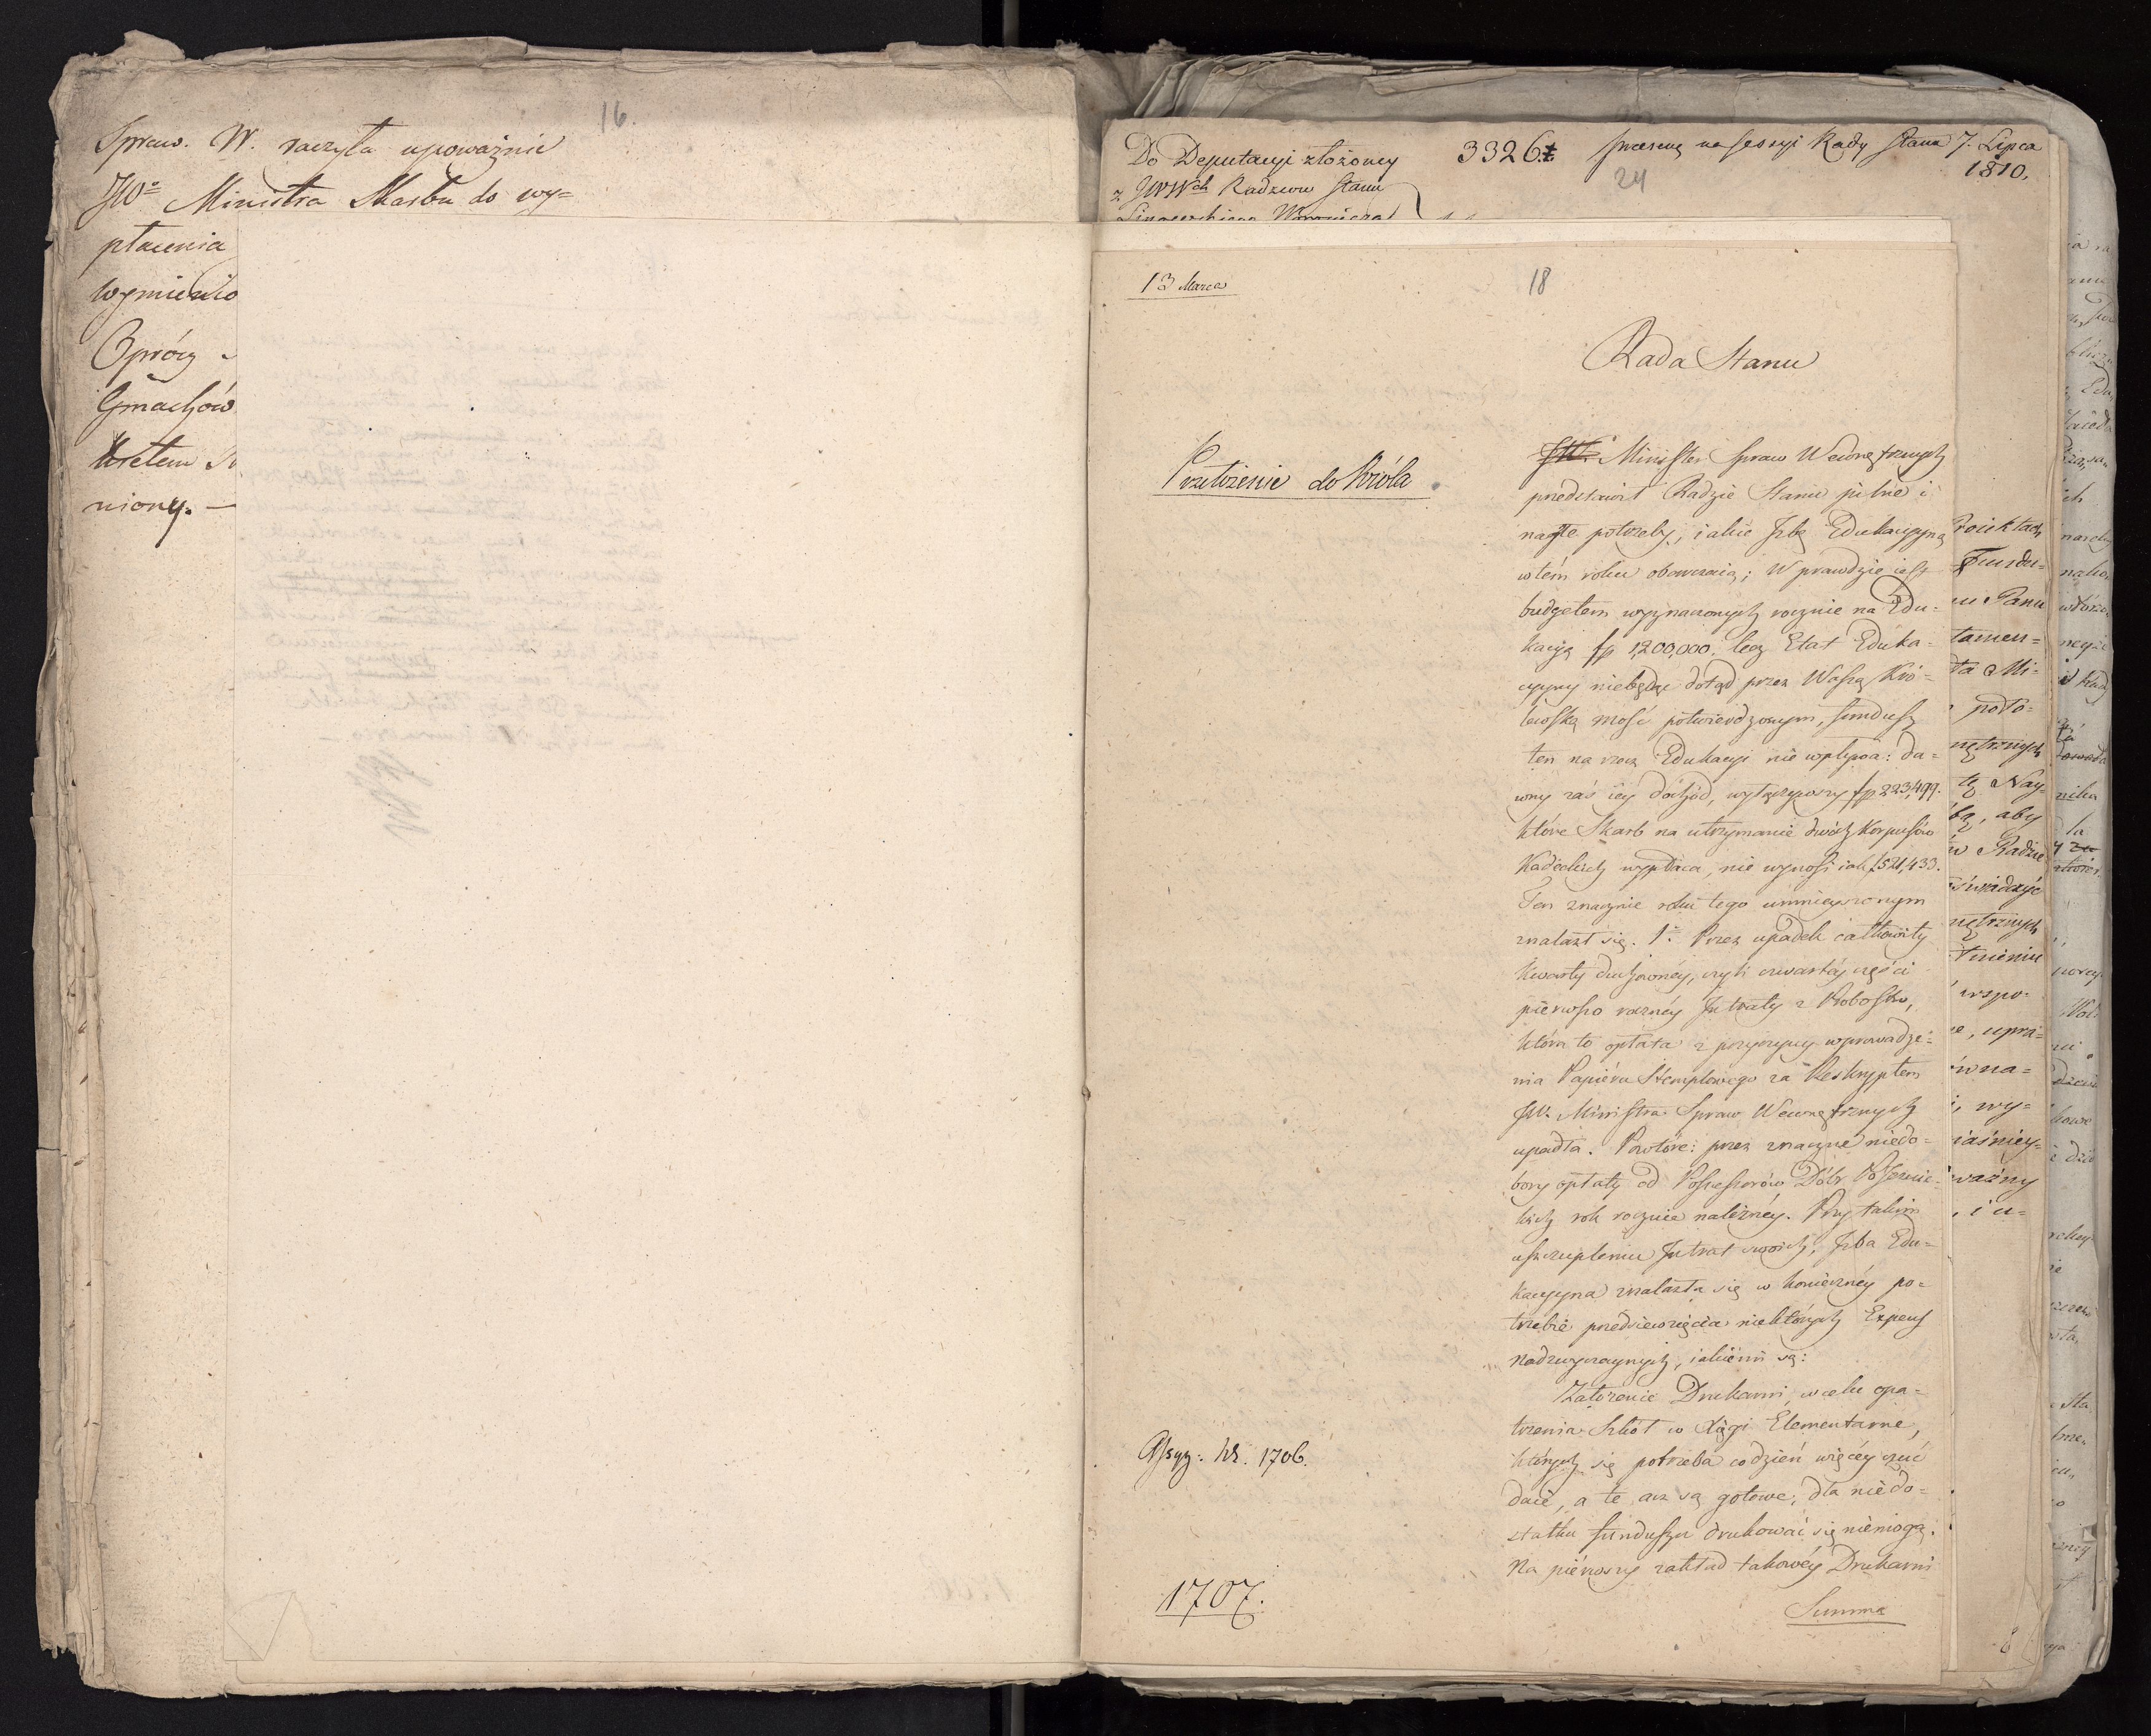 16.
Spraw. W. raczyła upoważnić
JWo Ministra Skarbu do wy=
płacenia
wymienio
Oprócz
Gmachów
niony. —
Do Deputacyi złożoney
z JWWch Radzców Stanu
3326
24
na Sessyi Rady Stanu 7. Lipca
1810.
13 Marca
18
Rada Stanu
Przełożenie do Króla
JW. Minister Spraw Wewnętrznych
przedstawił Radzie Stanu pilne i
nagłe potrzeby, iakie Izbę Edukacyyną
w tém roku obarczaią; W prawdzie iest
budgetem wyznaczonych rocznie na Edu=
kacyą fp 1,200,000. lecz Etat Eduka=
cyyny niebędąc dotąd przez Waszą Kró=
lewską mość potwierdzonym, fundusz
ten na rzecz Edukacyi nie wpływa: da=
wny zaś iey dochód, wytrąciwszy fp 223,499.
które Skarb na utrzymanie dwóch Korpusów
Kadeckich wypłaca, nie wynosi iak f 521,433.
Ten znacznie roku tego umnieyszonym
znalazł się. 1o Przez upadek całkowity
kwarty duchownéy, czyli czwartéy części
pierwszo rocznéy Intraty z Probostw,
która to opłata z przyczyny wprowadze=
nia Papiéru Stemplowego za Reskryptem
JW. Ministra Spraw Wewnętrznych
upadła. Powtóre: przez znaczne niedo=
bory opłaty od Possessorów Dóbr Pojezuic=
kich rok rocznie należnéy. Przy takim
uszczupleniu Intrat swoich, Izba Edu=
kacyyna znalazła się w koniecznéy po=
trzebie przedsiewzięcia niektórych Expens
nadzwyczaynych, iakiemi są:
Założenie Drukarni, w celu opa=
trzenia Szkół w Xięgi Elementarne,
których się potrzeba codzień więcéy czuć
daie, a te acz są gotowe, dla niedo=
statku funduszu drukować się niemogą.
Na piérwszy zakład takowéy Drukarni
Summa
Assyg: Nr. 1706.
1707.
Proiektach
Fundu=
Panu
tamen=
ta Mi=
poło=
nętrznych
tę Nay=
bą, aby
w Radzie
świadczyć
nętrznych
wspo=
, upra=
wna=
, wy=
iaśniey=
ważny
, i u=